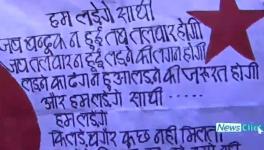 हम लड़ेंगे साथी
जब बन्दूक न हुई तब तलवार होगी
जब तलवार न हुई लड़ने की लगन होगी
लड़ने का ढंग न हुआ लड़ने की जरूरत होगी
और हम लड़ेंगे साथी .....
हम लड़ेंगे
कि लड़े बगैर कुछ नहीं मिलता
NewsClick